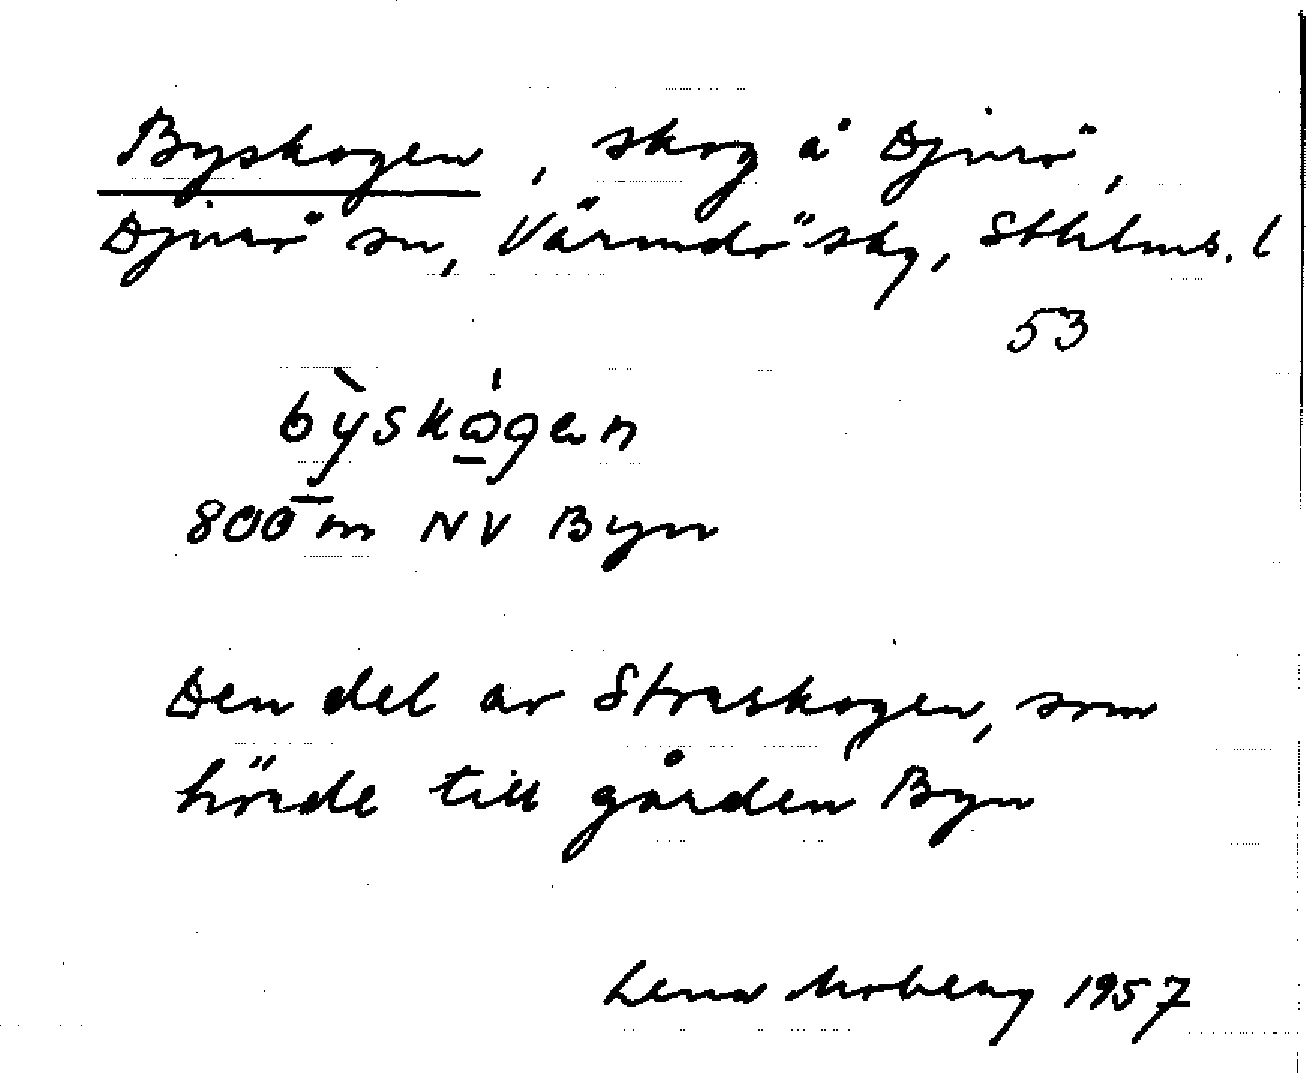 Byskogen, skog å Djurö,
Djurö sn, Värmdö skg, Sthlms. l
53
bỳskо̨́gen
800 m NV Byn
Den del av Storskogen, som
hörde till gården Byn
Lena Moberg 1957